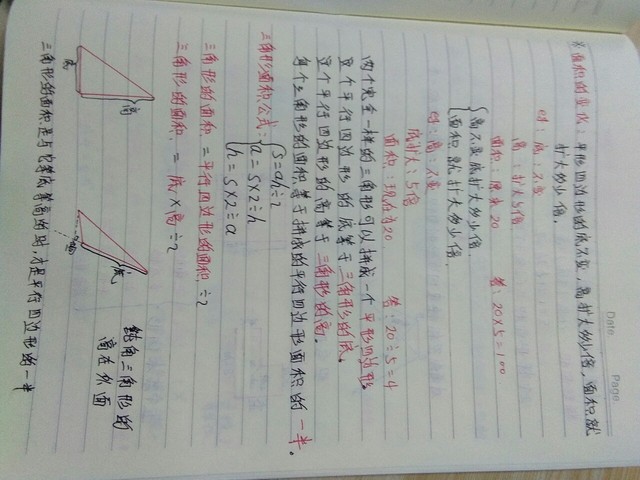 Date
Page
※面积的变化：平形四边形的底不变，高扩大多少倍，面积就
扩大多少倍。
时：底：不变
高：扩大5倍
面积：原来20 答：20×5=100
高不变底扩大多少倍，
面积就扩大多少倍。
时：高：不变
底扩大：5倍
面积：现在为20 答：20÷5=4
两个完全一样的三角形可以拼成一个平形四边形
这个平行四边形的底等于三角形的底，
这个平行四边形的高等于三角形的高。
每个三角形的面积等于拼成的平行四边形面积的一半。
三角形面积公式：S=ah÷2
a=S×2÷h
h=S×2÷a
三角形的面积=平行四边形的面积÷2
三角形的面积=底×高÷2
高
底
钝角三角形的
高在外面
三角形的面积是与它等底等高的时，才是平行四边形的一半